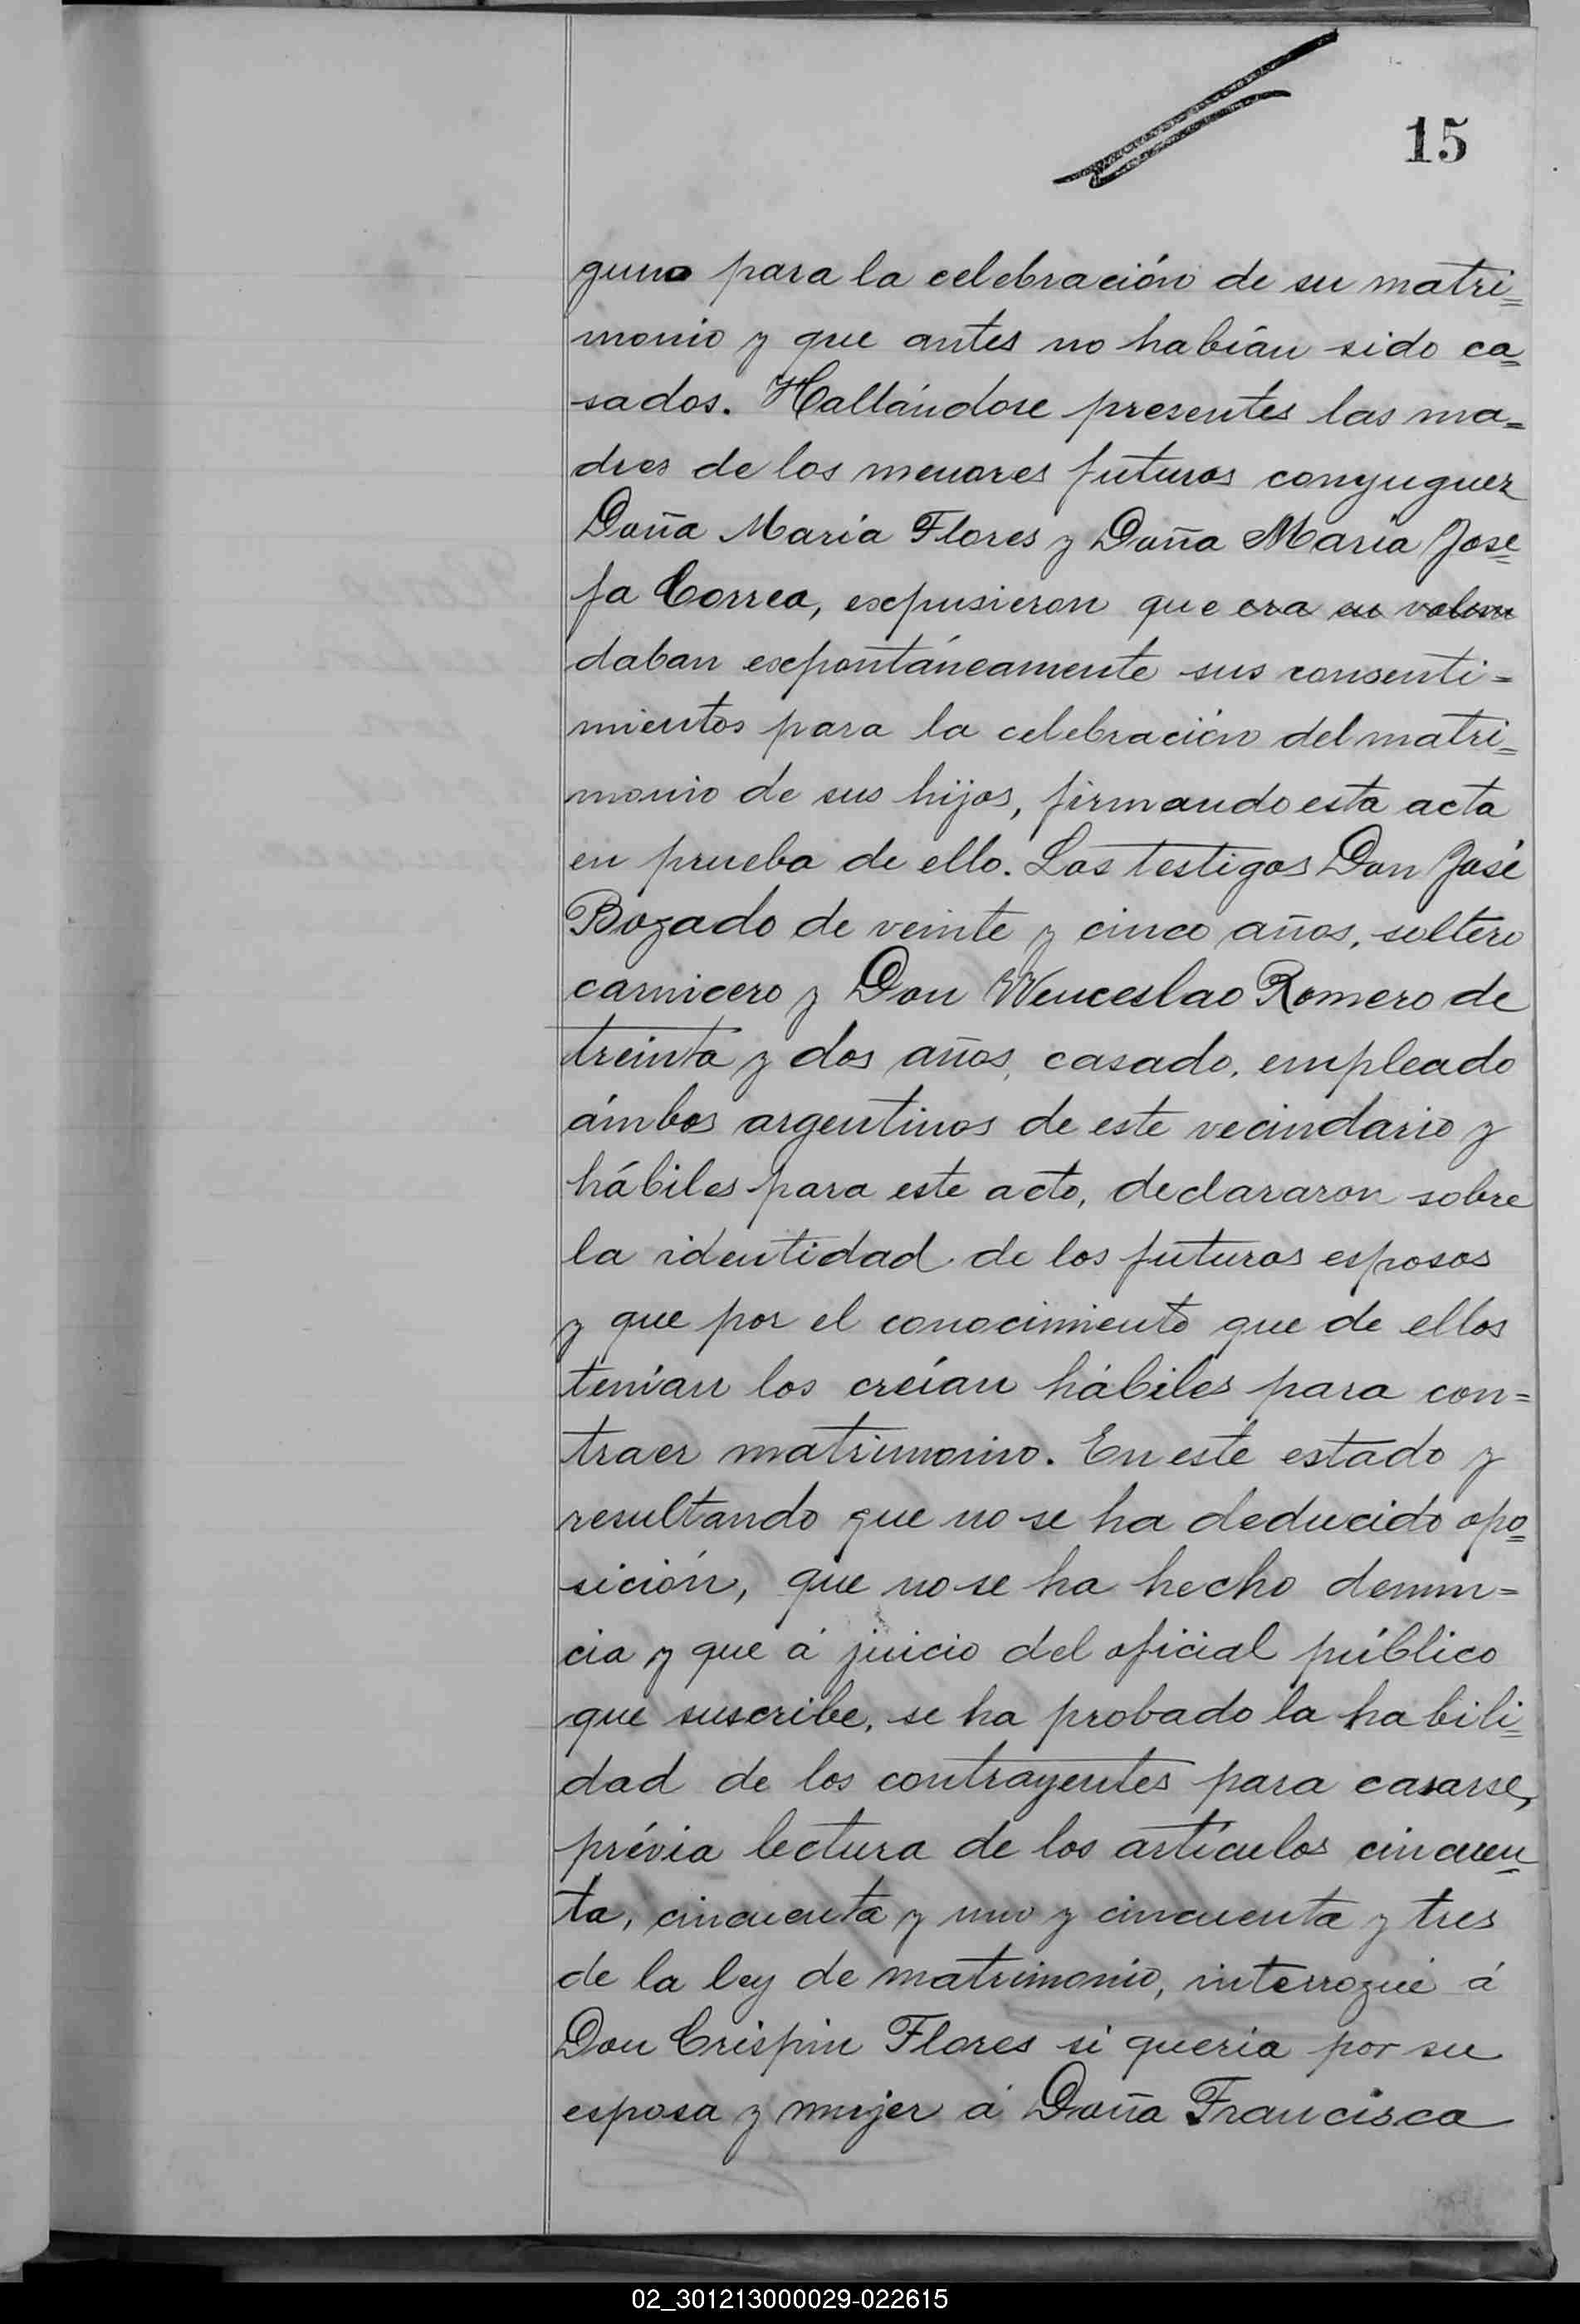 15
guno para la celebración de su matri=
monio y que antes no habían sido ca=
sados. Hallándose presentes las ma=
dres de los menores futuros conyuguez
Doña María Flores y Doña María Jose=
fa Correa, expusieron que era su volun
daban expontáneamente sus consenti=
mientos para la celebración del matri=
monio de sus hijos, firmando esta acta
en prueba de ello. Los testigos Don José
Bozado de veinte y cinco años, soltero
carnicero y Don Wenceslao Romero de
treinta y dos años, casado, empleado
ámbos argentinos de este vecindario y
hábiles para este acto, declararon sobre
la identidad de los futuros esposos
y que por el conocimiento que de ellos
tenían los creían hábiles para con=
traer matrimonio. En este estado y
resultando que no se ha deducido opo=
sición, que no se ha hecho denun=
cia y que á juicio del oficial público
que suscribe, se ha probado la habili=
dad de los contrayentes para casarse,
prévia lectura de los artículos cincuen=
ta, cincuenta y uno y cincuenta y tres
de la ley de matrimonio, interrogué á
Don Crispin Flores si queria por su
esposa y mujer á Doña Francisca
02_301213000029-022615